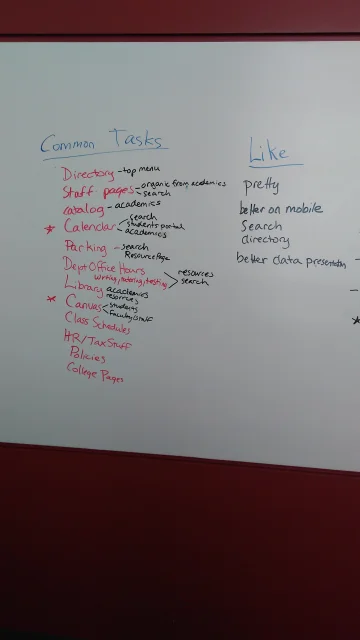 Common Tasks
Directory - top menu
Staff pages - organic from academics
search
catalog - academics
* Calendar - search
students portal
academics
Parking - search
Resource Page
Dept Office Hours
writing, tutoring, testing
resources
search
Library academics
resources
* Canvas - students
Faculty & Staff
Class Schedules
HR/Tax Stuff
Policies
College Pages
Like
pretty
better on mobile
Search
directory
better data presentation